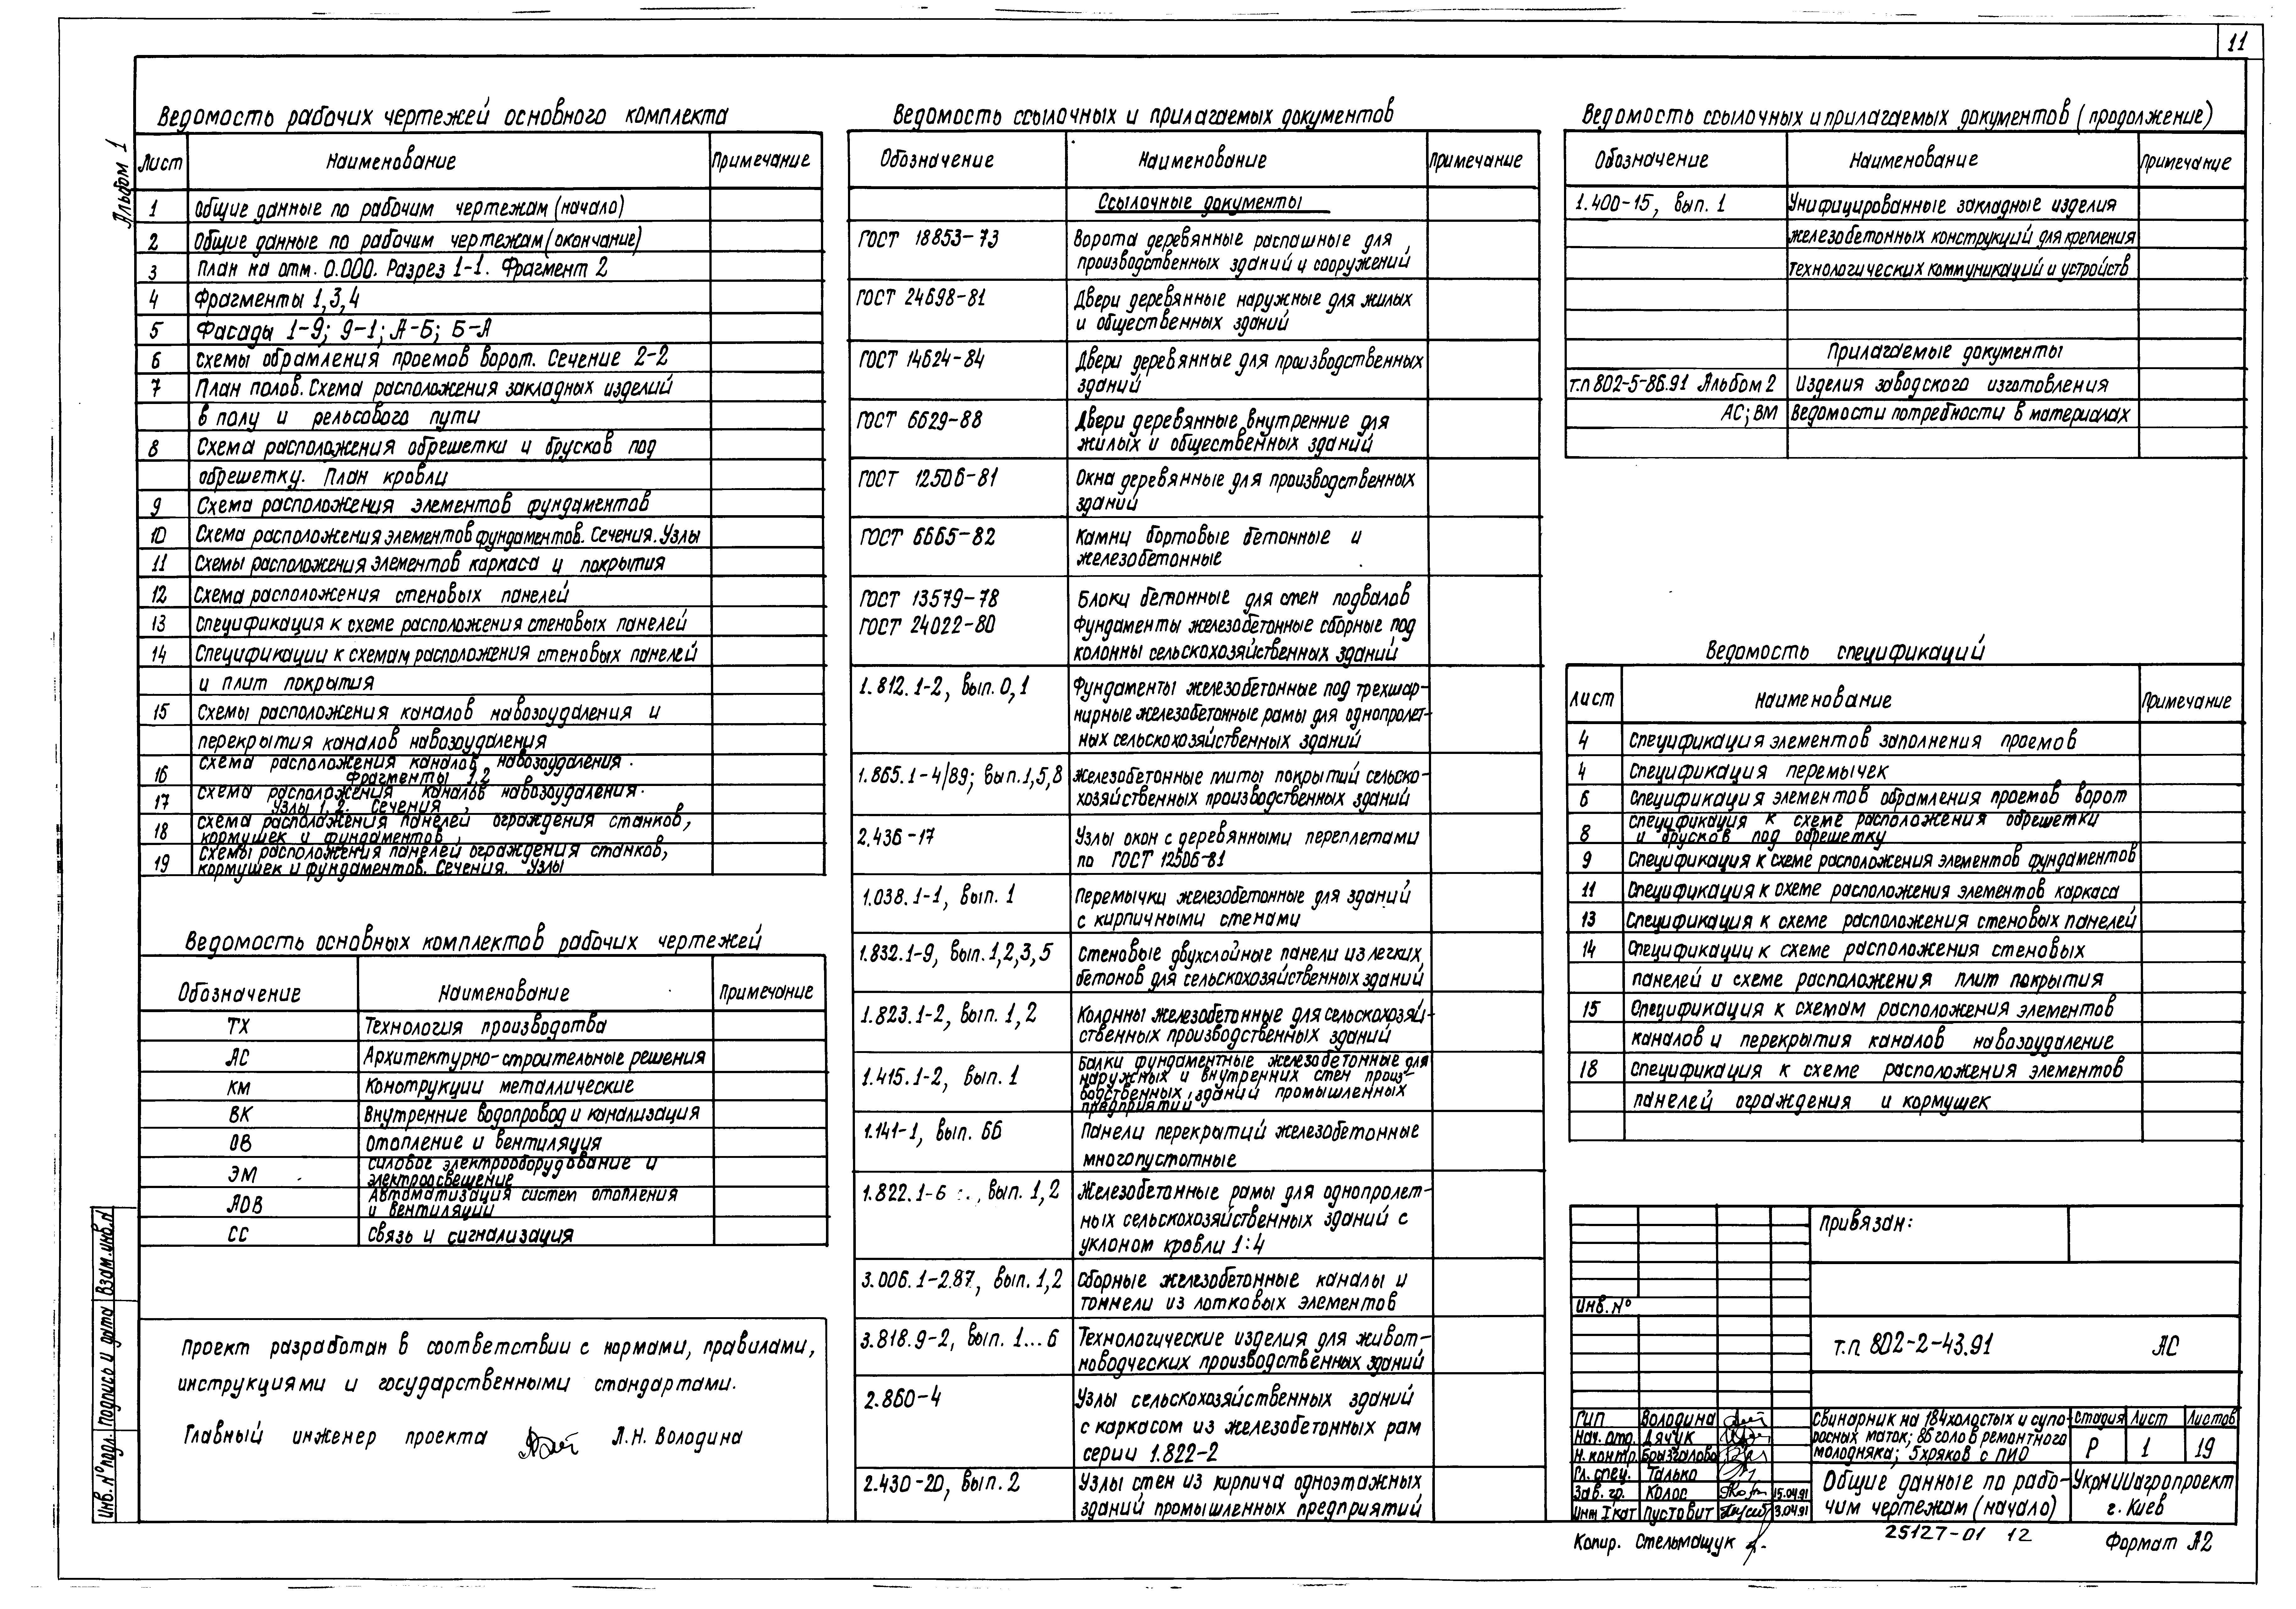 11
Альбом 1
Ведомость рабочих чертежей основного комплекта
Лист Наименование Примечание
1 Общие данные по рабочим чертежам (начало)
2 Общие данные по рабочим чертежам (окончание)
3 План на отм. 0.000. Разрез 1-1. Фрагмент 2
4 Фрагменты 1,3,4
5 Фасады 1-9; 9-1; А-Б; Б-А
6 Схемы обрамления проемов ворот. Сечение 2-2
7 План полов. Схема расположения закладных изделий
в полу и рельсового пути
8 Схема расположения обрешетки и брусков под
обрешетку. План кровли
9 Схема расположения элементов фундаментов
10 Схема расположения элементов фундаментов. Сечения. Узлы
11 Схемы расположения элементов каркаса и покрытия
12 Схема расположения стеновых панелей
13 Спецификация к схеме расположения стеновых панелей
14 Спецификации к схемам расположения стеновых панелей
и плит покрытия
15 Схемы расположения каналов навозоудаления и
перекрытия каналов навозоудаления
16 Схема расположения каналов навозоудаления.
Фрагменты 1,2
17 Схема расположения каналов навозоудаления.
Узлы 1, 2. Сечения
18 Схема расположения панелей ограждения станков,
кормушек и фундаментов
19 Схемы расположения панелей ограждения станков,
кормушек и фундаментов. Сечения. Узлы
Ведомость основных комплектов рабочих чертежей
Обозначение Наименование Примечание
ТХ Технология производства
АС Архитектурно-строительные решения
КМ Конструкции металлические
ВК Внутренние водопровод и канализация
ОВ Отопление и вентиляция
ЭМ Силовое электрооборудование и
электроосвещение
АОВ Автоматизация систем отопления
и вентиляции
СС Связь и сигнализация
Проект разработан в соответствии с нормами, правилами,
инструкциями и государственными стандартами.
Главный инженер проекта Л.Н. Володина
Инв. № подл. Подпись и дата Взам.инв.N
Ведомость ссылочных и прилагаемых документов
Обозначение Наименование Примечание
Ссылочные документы
ГОСТ 18853-73 Ворота деревянные распашные для
производственных зданий и сооружений
ГОСТ 24698-81 Двери деревянные наружные для жилых
и общественных зданий
ГОСТ 14624-84 Двери деревянные для производственных
зданий
ГОСТ 6629-88 Двери деревянные внутренние для
жилых и общественных зданий
ГОСТ 12506-81 Окна деревянные для производственных
зданий
ГОСТ 6665-82 Камни бортовые бетонные и
железобетонные
ГОСТ 13579-78 Блоки бетонные для стен подвалов
ГОСТ 24022-80 Фундаменты железобетонные сборные под
колонны сельскохозяйственных зданий
1.812.1-2, вып. 0,1 Фундаменты железобетонные под трехшар-
нирные железобетонные рамы для однопролет-
ных сельскохозяйственных зданий
1.865.1-4/89; вып.1,5,8 Железобетонные плиты покрытий сельско-
хозяйственных производственных зданий
2.436-17 Узлы окон с деревянными переплетами
по ГОСТ 12506-81
1.038.1-1, вып. 1 Перемычки железобетонные для зданий
с кирпичными стенами
1.832.1-9, вып.1,2,3,5 Стеновые двухслойные панели из легких
бетонов для сельскохозяйственных зданий
1.823.1-2, вып. 1, 2 Колонны железобетонные для сельскохозяй-
ственных производственных зданий
1.415.1-2, вып. 1 Балки фундаментные железобетонные для
наружных и внутренних стен произ-
водственных зданий промышленных
предприятий
1.141-1, вып. 66 Панели перекрытий железобетонные
многопустотные
1.822.1-6 , вып. 1,2 Железобетонные рамы для однопролет-
ных сельскохозяйственных зданий с
уклоном кровли 1:4
3.006.1-2.87, вып. 1,2 Сборные железобетонные каналы и
тоннели из лотковых элементов
3.818.9-2, вып. 1...6 Технологические изделия для живот-
новодческих производственных зданий
2.860-4 Узлы сельскохозяйственных зданий
с каркасом из железобетонных рам
серии 1.822-2
2.430-20, вып. 2 Узлы стен из кирпича одноэтажных
зданий промышленных предприятий
Ведомость ссылочных и прилагаемых документов (продолжение)
Обозначение Наименование Примечание
1.400-15, вып. 1 Унифицированные закладные изделия
железобетонных конструкций для крепления
технологических коммуникаций и устройств
Прилагаемые документы
т.п 802-5-86.91 Альбом 2 Изделия заводского изготовления
АС; ВМ Ведомости потребности в материалах
Ведомость спецификаций
Лист Наименование Примечание
4 Спецификация элементов заполнения проемов
4 Спецификация перемычек
6 Спецификация элементов обрамления проемов ворот
8 Спецификация к схеме расположения обрешетки
и брусков под обрешетку
9 Спецификация к схеме расположения элементов фундаментов
11 Спецификация к схеме расположения элементов каркаса
13 Спецификация к схеме расположения стеновых панелей
14 Спецификации к схеме расположения стеновых
панелей и схеме расположения плит покрытия
15 Спецификация к схемам расположения элементов
каналов и перекрытия каналов навозоудаление
18 Спецификация к схеме расположения элементов
панелей ограждения и кормушек
Привязан:
Инв.№
т.п 802-2-43.91 АС
ГИП Володина
Нач. отд. Дячук
Н. контр. Брызгалова
Гл. спец. Талько
Зав. гр. Колос 15.04.91
Инж I кат Пустовит 3.04.91
Свинарник на 184 холостых и супо-
росных маток; 86 голов ремонтного
молодняка; 5 хряков с ПИО
Стадия Лист Листов
Р 1 19
Общие данные по рабо-
чим чертежам (начало)
УкрНИИагропроект
г. Киев
25127-01 12
Копир. Стельмащук
Формат А2